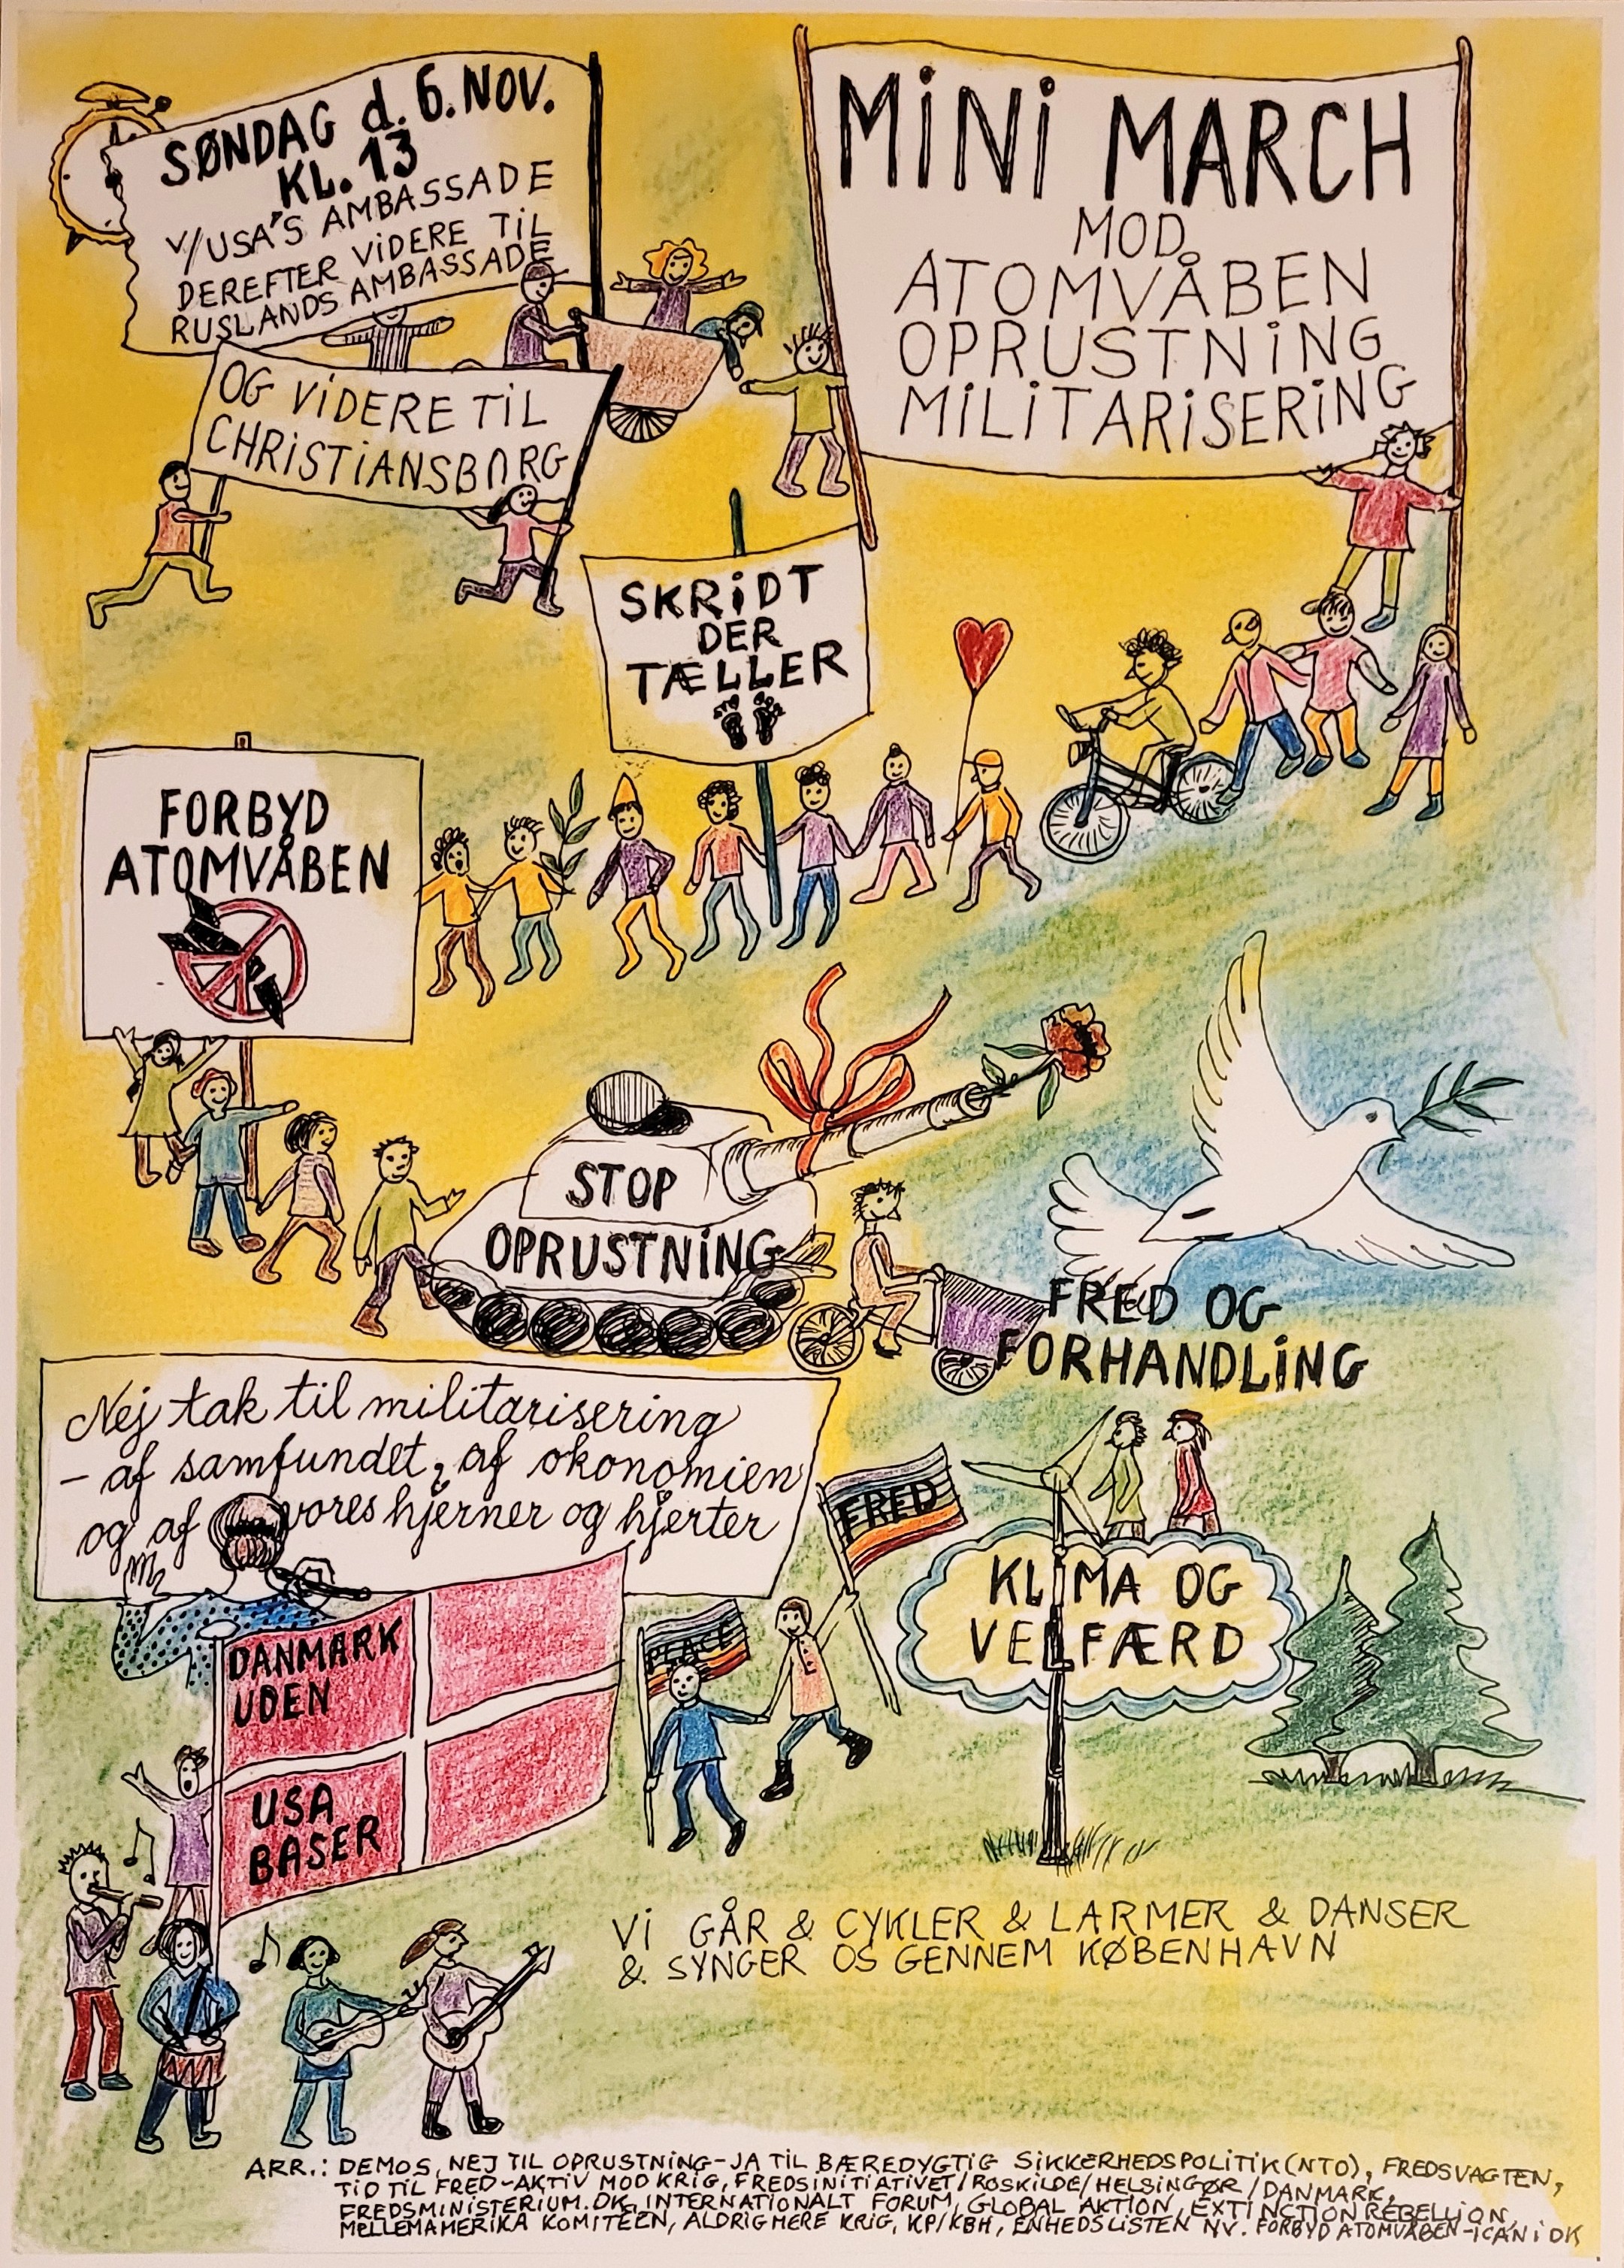 SØNDAG d. 6. NOV.
KL. 13
v/USA'S AMBASSADE
DEREFTER VIDERE TIL
RUSLANDS AMBASSADE
OG VIDERE TIL
CHRISTIANSBORG
MINI MARCH
MOD
ATOMVÅBEN
OPRUSTNING
MILITARISERING
SKRIDT
DER
TÆLLER
FORBYD
ATOMVÅBEN
STOP
OPRUSTNING
FRED OG
FORHANDLING
Nej tak til militarisering
- af samfundet, af økonomien
og af vores hjerner og hjerter
FRED
PEACE
KLIMA OG
VELFÆRD
DANMARK
UDEN
USA
BASER
VI GÅR & CYKLER & LARMER & DANSER
& SYNGER OS GENNEM KØBENHAVN
ARR.: DEMOS, NEJ TIL OPRUSTNING-JA TIL BÆREDYGTIG SIKKERHEDSPOLITIK (NTO), FREDSVAGTEN,
TID TIL FRED-AKTIV MOD KRIG, FREDSINITIATIVET/ROSKILDE/HELSINGØR/DANMARK,
FREDSMINISTERIUM.DK, INTERNATIONALT FORUM, GLOBAL AKTION, EXTINCTION REBELLION,
MELLEMAMERIKA KOMITEEN, ALDRIG MERE KRIG, KP/KBH, ENHEDSLISTEN NV. FORBYD ATOMVÅBEN-ICAN i DK